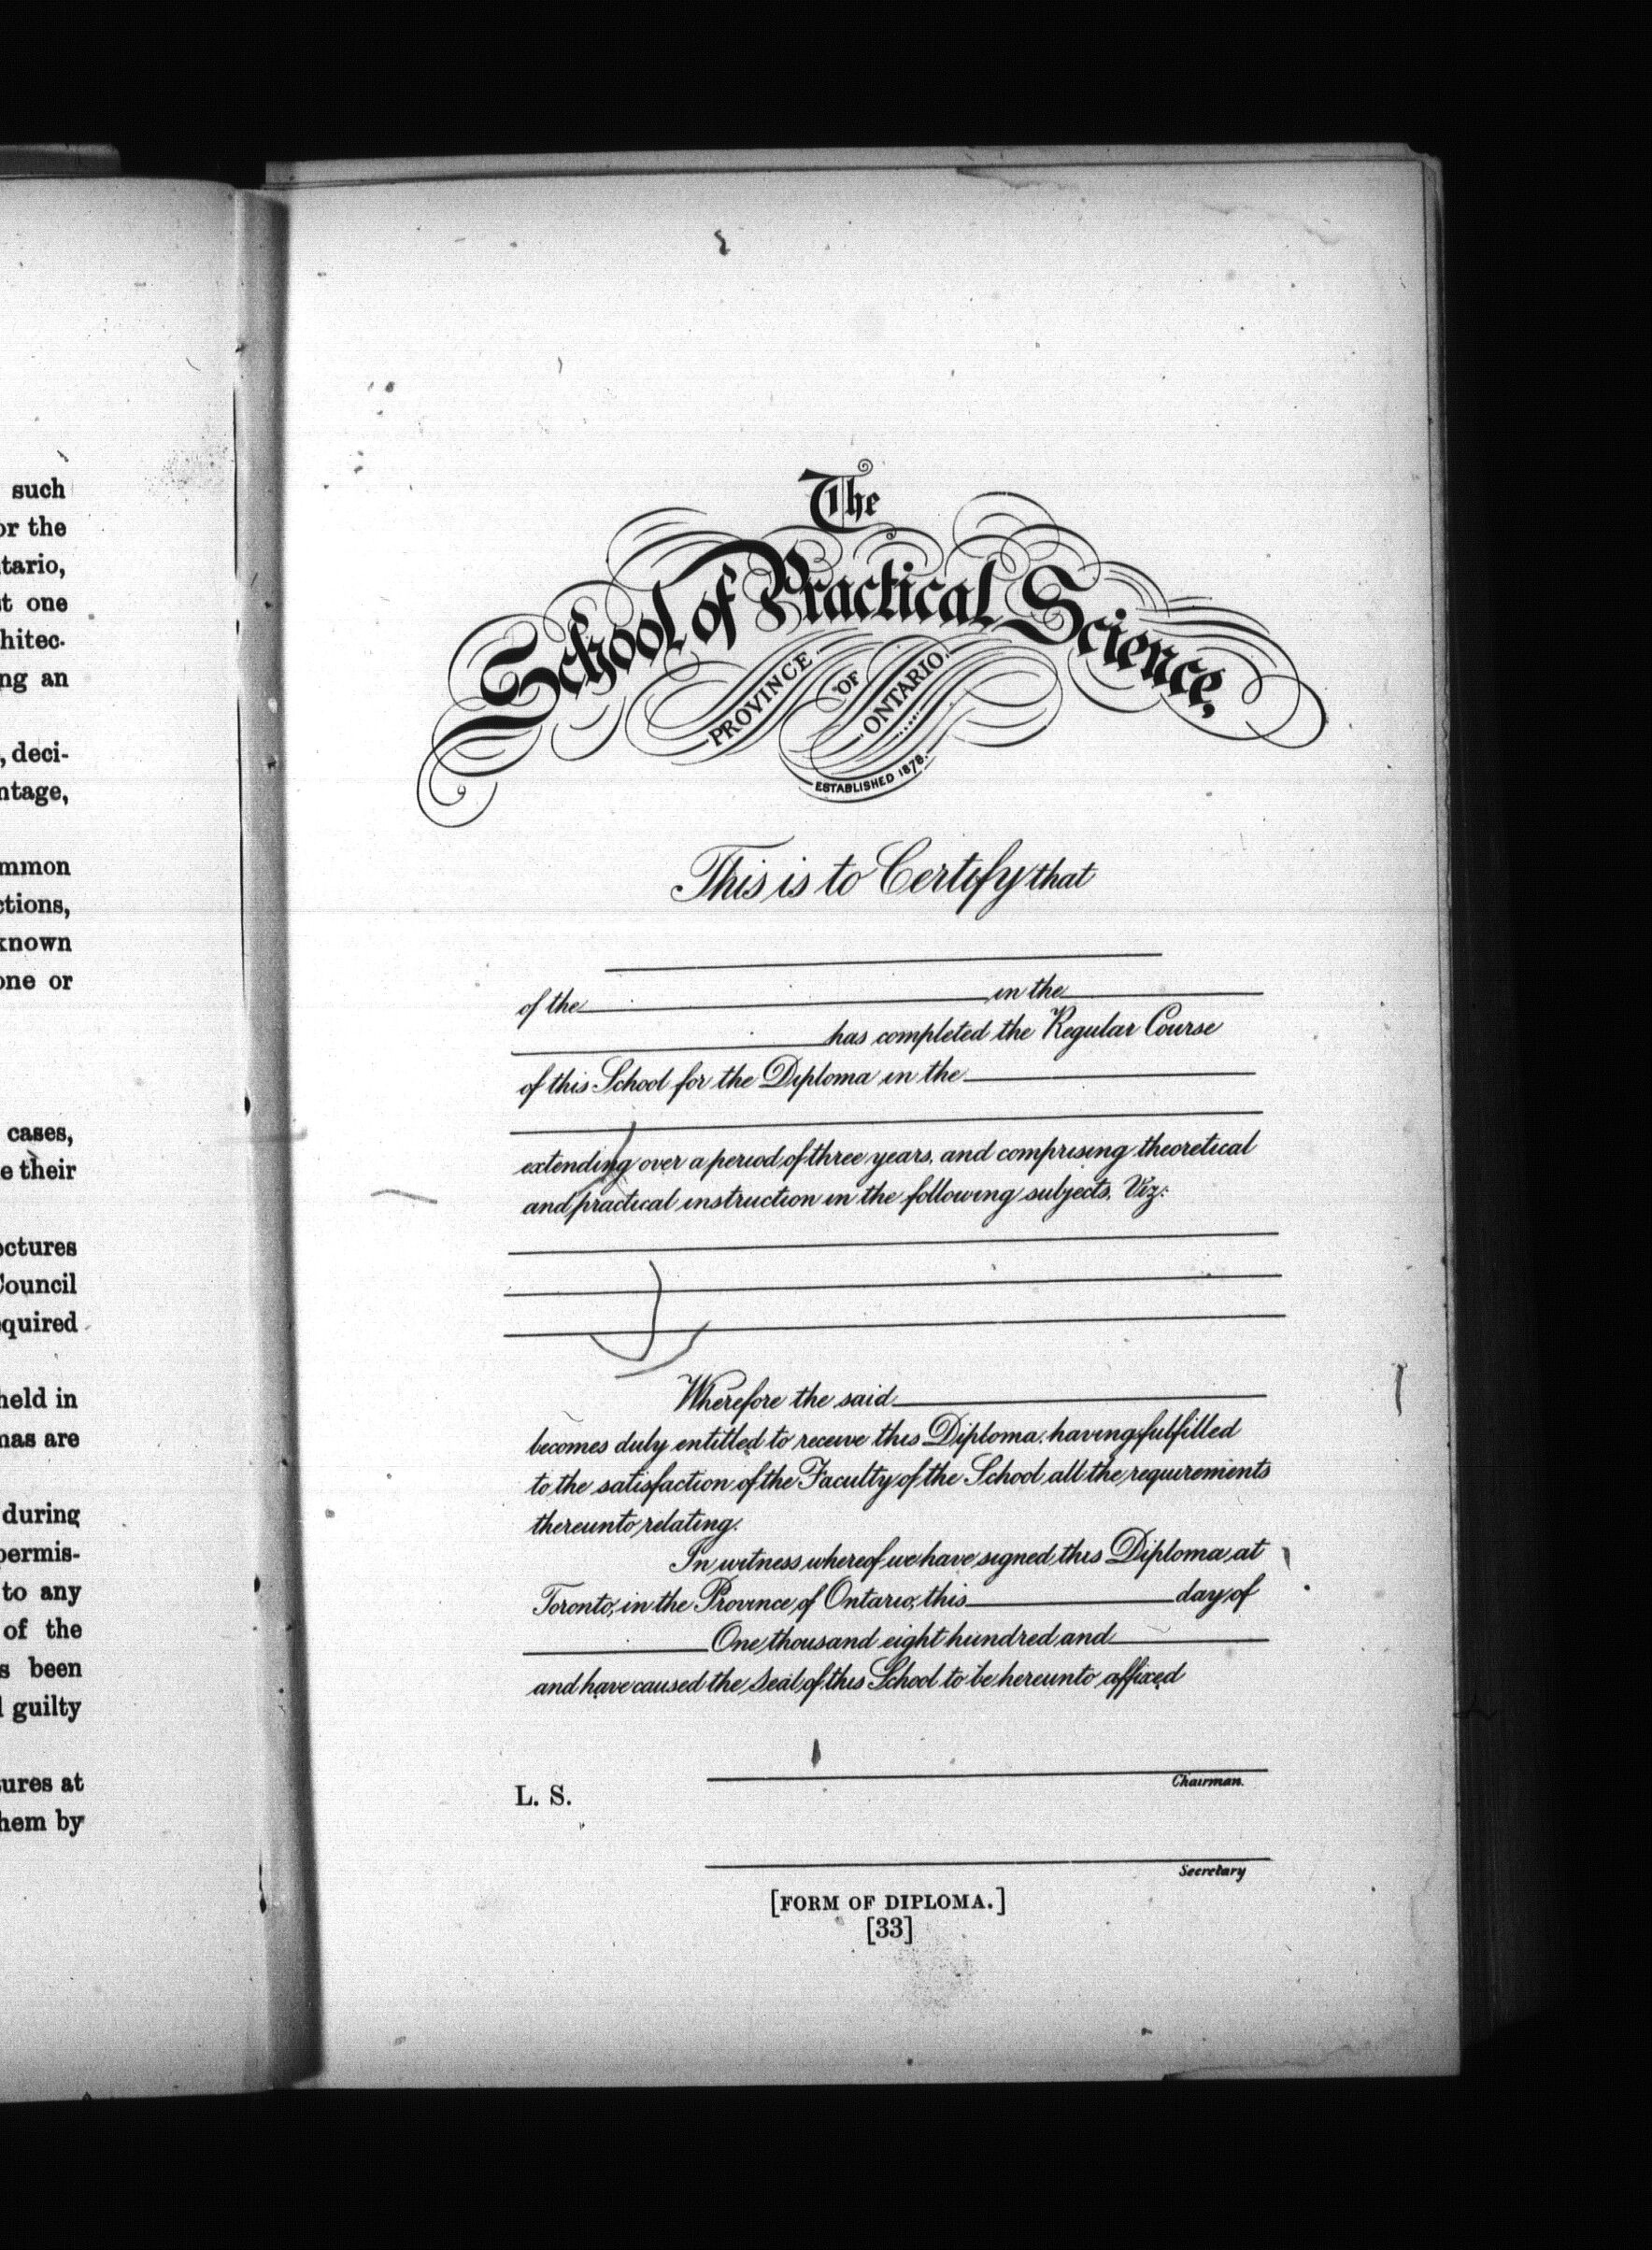 such
or the
tario,
t one
hitec-
ng an
, deci-
ntage,
mmon
ctions,
known
one or
cases,
e their
ectures
Council
equired
held in
mas are
during
permis-
to any
of the
s been
l guilty
tures at
hem by
The
School of Practical Science,
PROVINCE OF ONTARIO.
ESTABLISHED 1878.
This is to Certify that
of the in the
has completed the Regular Course
of this School for the Diploma in the
extending over a period of three years, and comprising theoretical
and practical instruction in the following subjects, Viz:
Wherefore the said
becomes duly entitled to receive this Diploma, having fulfilled
to the satisfaction of the Faculty of the School all the requirements
thereunto relating.
In witness whereof we have signed this Diploma, at
Toronto, in the Province of Ontario, this day of
One thousand eight hundred and
and have caused the Seal of this School to be hereunto affixed
Chairman.
L. S.
Secretary
[FORM OF DIPLOMA.]
[33]